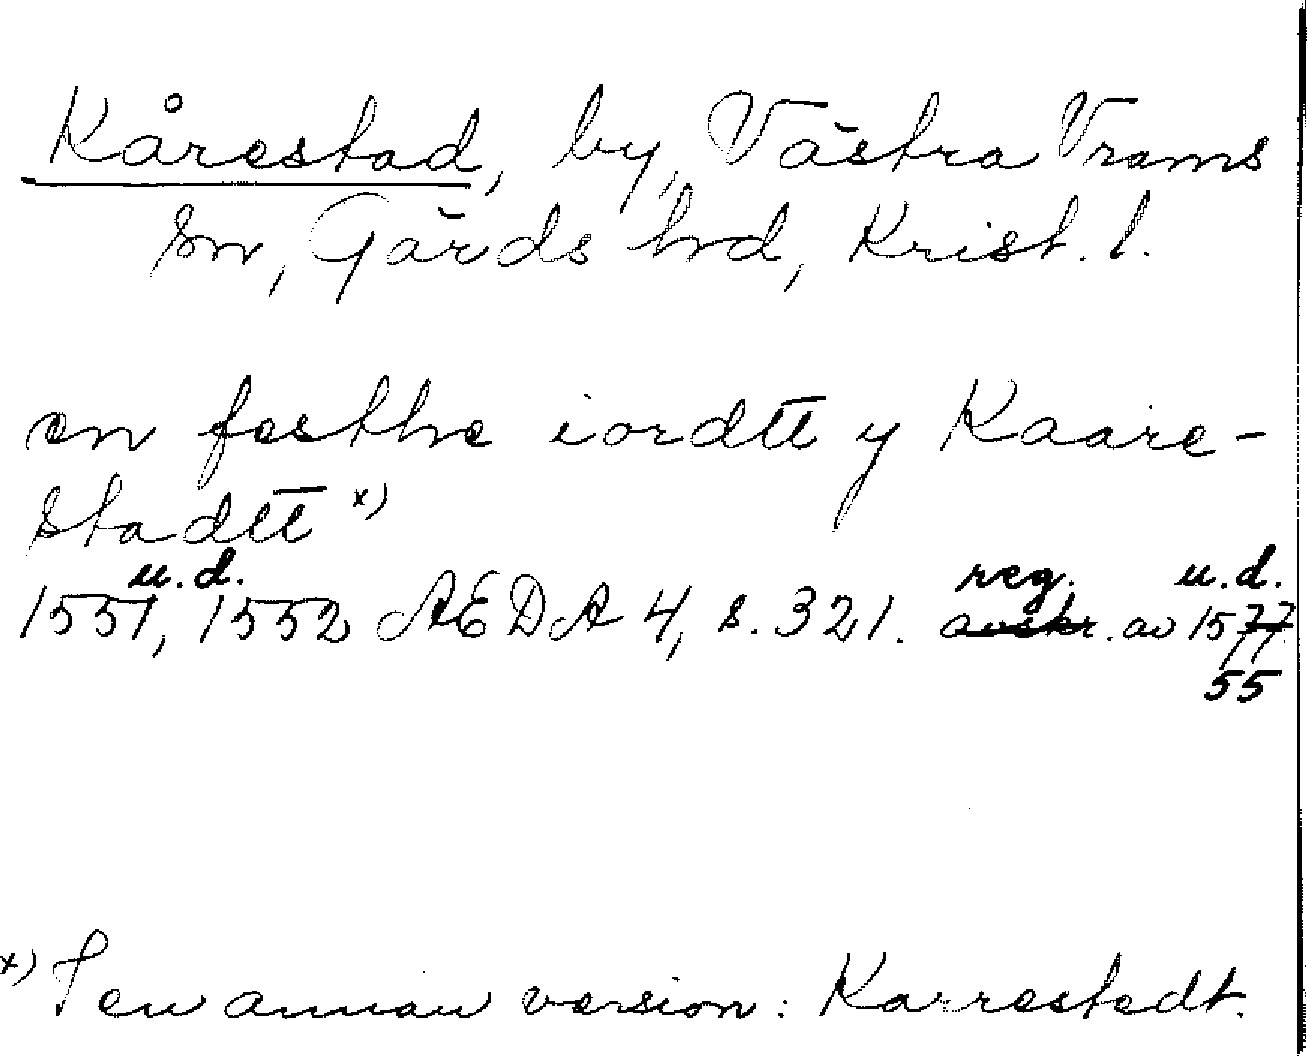 Kårestad, by, Västra Vrams
sn, Gärds hd, Krist. l.
en festhe iordtt y Kaare-
stadtt x)
u.d. reg. u.d.
1551, 1552 AEDA 4, s. 321. avskr. av 1577
55
x) I en annan version: Karrestedt.